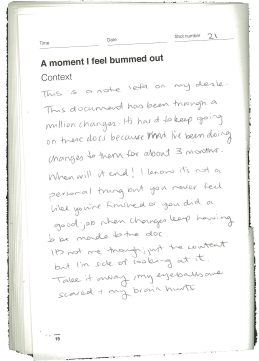 Time Date Shot number 21
A moment I feel bummed out
Context
This is a note left on my desk.
This document has been through a
million changes. It's hard to keep going
on these docs because that I've been doing
changes to them for about 3 months.
When will it end! I know it's not a
personal thing but you never feel
like you're finished or you did a
good job when changes keep having
to be made to the doc.
It's not me though, just the content
but I'm sick of looking at it.
Take it away, my eyeballs are
scared & my brain hurts